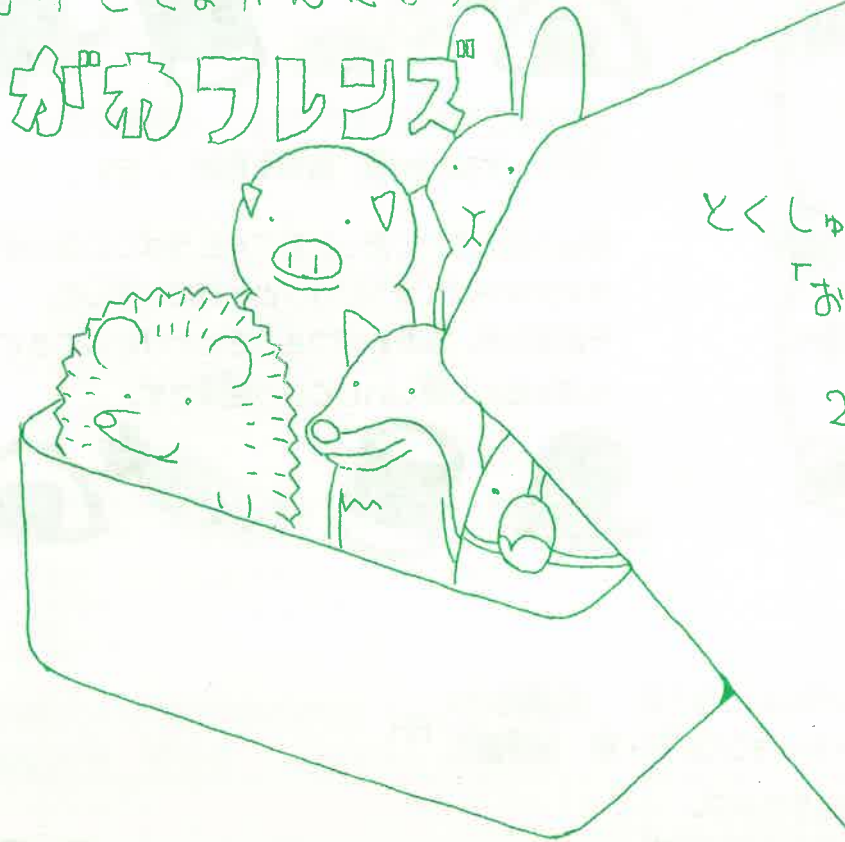 がわフレンズ
とくしゅ
「お
2